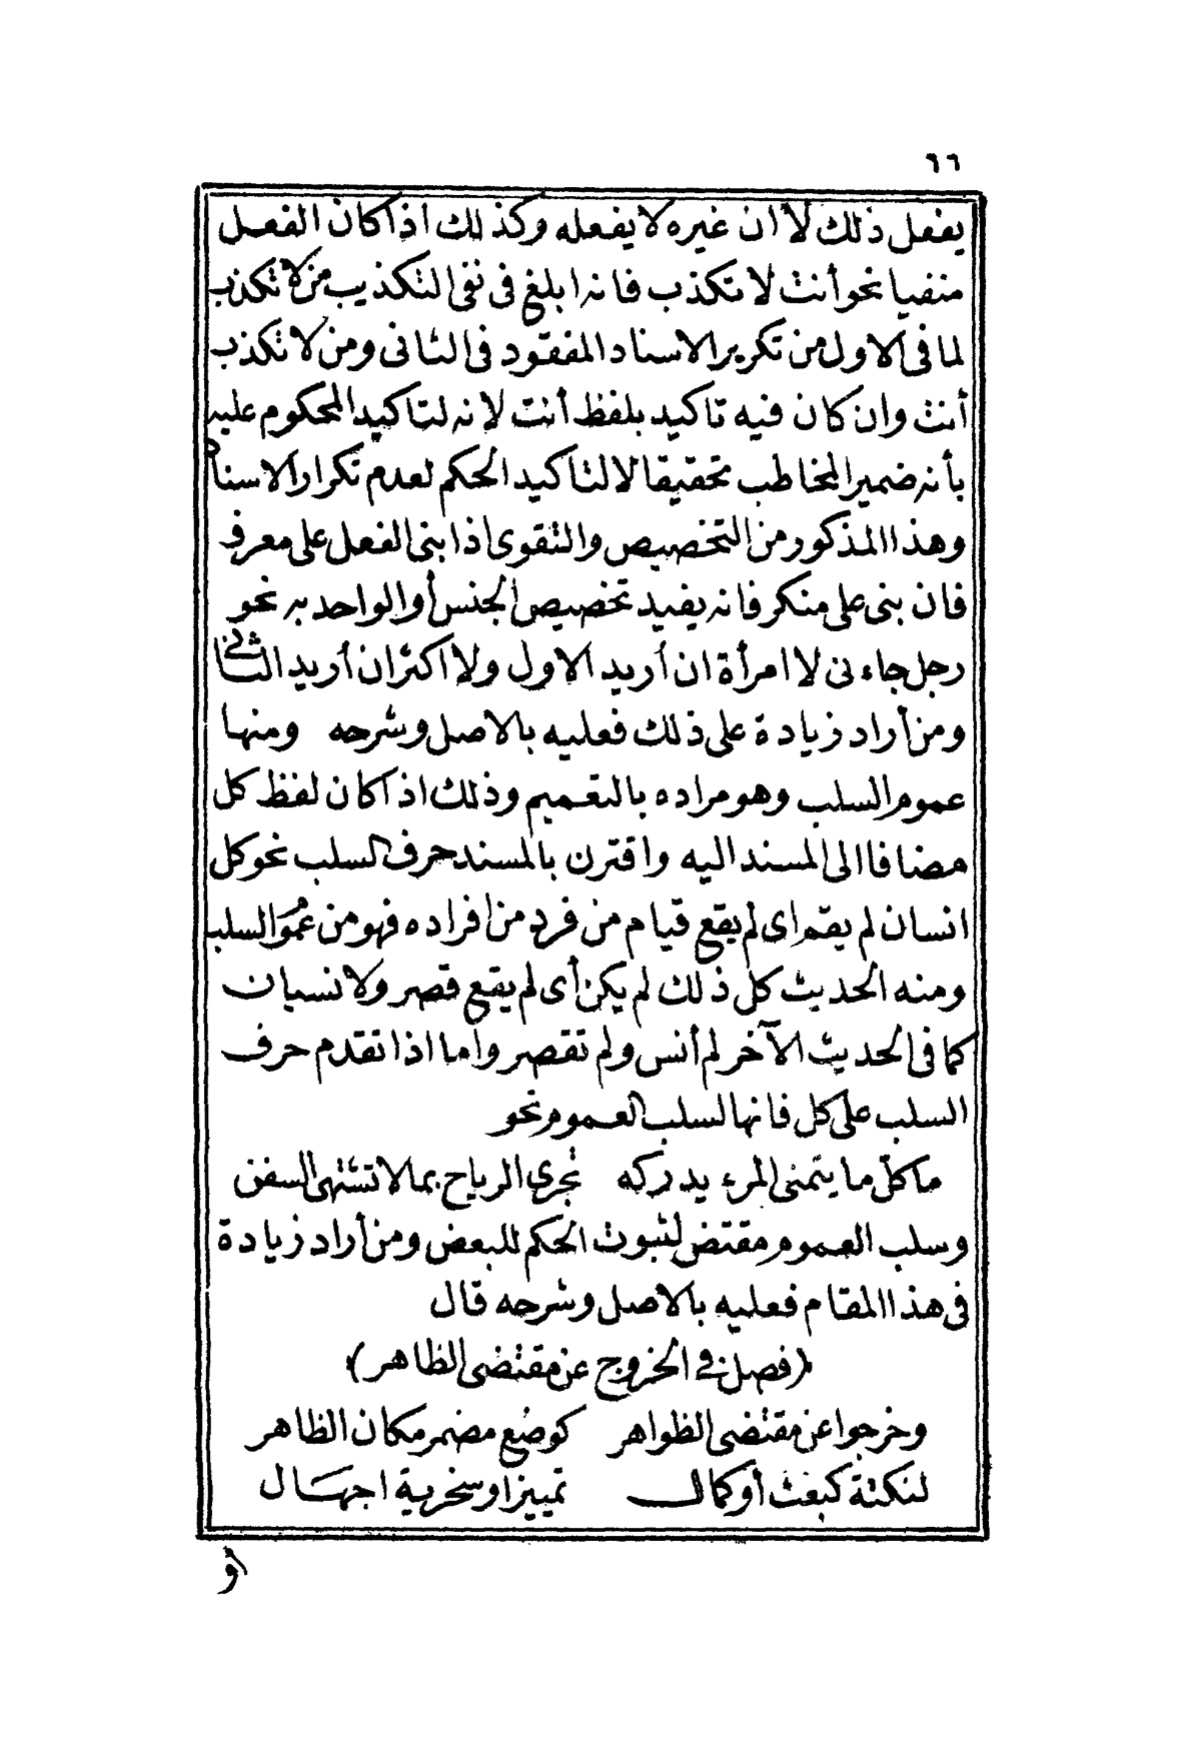 ٦٦
يفعل ذلك لا أن غيره لا يفعله وكذلك اذا كان الفعل
منفيا نحو أنت لا تكذب فانه ابلغ في نفي التكذيب من لا تكذب
لما في الاول من تكرير الاسناد المفقود في الثاني ومن لا تكذب
أنت وان كان فيه تاكيد بلفظ أنت لانه لتاكيد المحكوم عليه
بأنه ضمير المخاطب تحقيقا لا لتاكيد الحكم لعدم تكرار الاسناد
وهذا المذكور من التخصيص والتقوى اذا بنى الفعل على معرف
فان بنى على منكر فانه يفيد تخصيص الجنس أو الواحد به نحو
رجل جاءنى لا امرأة ان أريد الاول ولا اكثر ان أريد الثانى
ومن أراد زيادة على ذلك فعليه بالاصل وشرحه ومنها
عموم السلب وهو مراده بالتعميم وذلك اذا كان لفظ كل
مضافا الى المسند اليه واقترن بالمسند حرف السلب نحو كل
انسان لم يقم اى لم يقع قيام من فرد من افراده فهو من عموم السلب
ومنه الحديث كل ذلك لم يكن أى لم يقع قصر ولا نسيان
كما في الحديث الآخر لم أنس ولم تقصر واما اذا تقدم حرف
السلب على كل فانها لسلب العموم نحو
ما كلّ ما يتمنى المرء يدركه تجرى الرياح بما لا تشتهى السفن
وسلب العموم مقتض لثبوت الحكم للبعض ومن أراد زيادة
في هذا المقام فعليه بالاصل وشرحه قال
(فصل في الخروج عن مقتضى الظاهر)
وخرجوا عن مقتضى الظواهر كوضع مضمر مكان الظاهر
لنكتة كبعث أو كمال تمييز او سخرية اجهال
أو